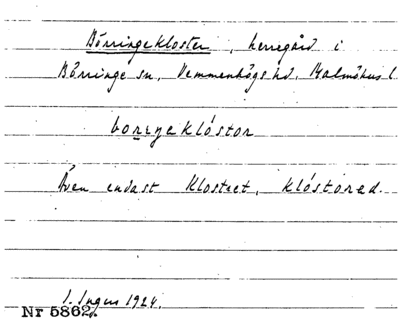 Börringekloster, herregård i
Börringe sn, Vemmenhögs hd. Malmöhus l
borŋeklóstor
Även endast Klostret, klóstored.
I. Ingers 1924.
Nr 5862